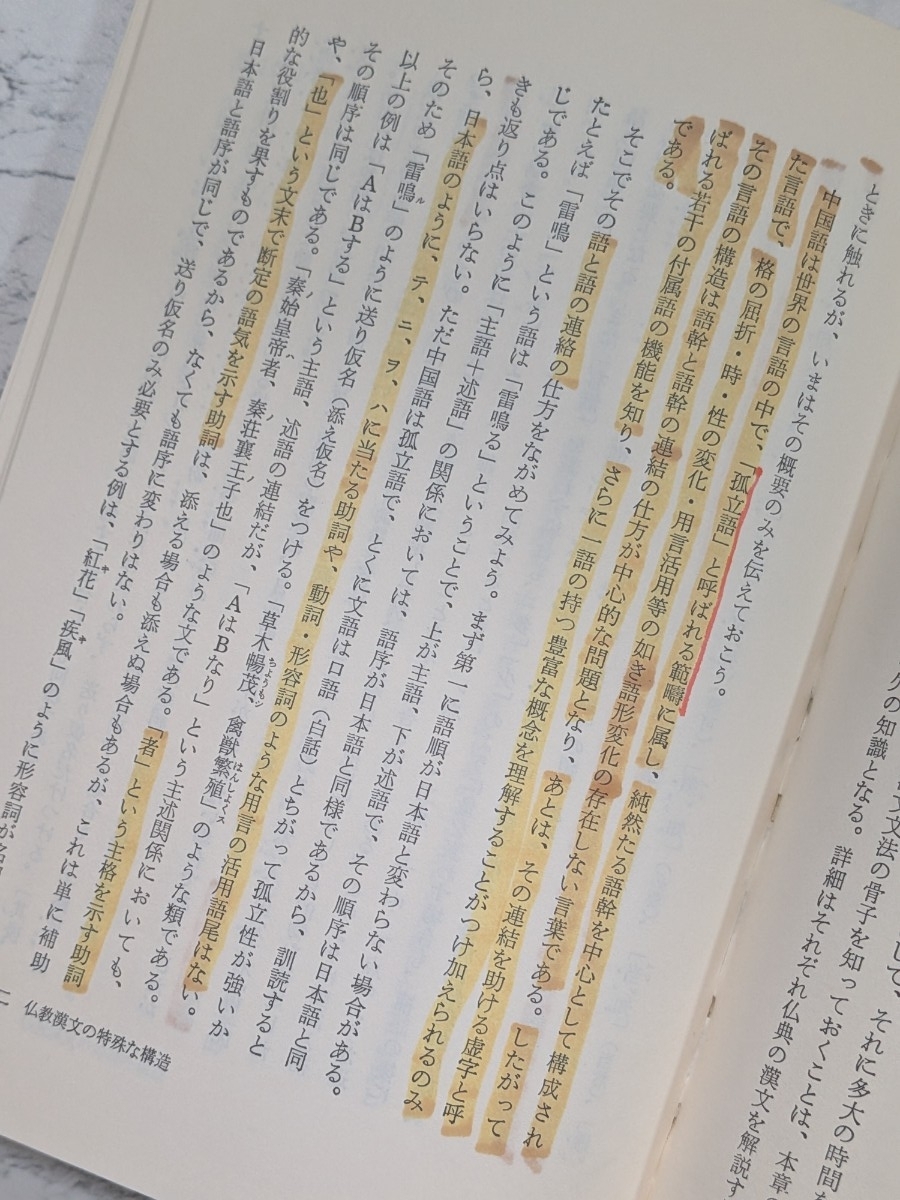 して、それに多大の時間
文法の骨子を知っておくことは、本章の
の知識となる。詳細はそれぞれ仏典の漢文を解説す
ときに触れるが、いまはその概要のみを伝えておこう。
中国語は世界の言語の中で、「孤立語」と呼ばれる範疇に属し、純然たる語幹を中心として構成され
た言語で、格の屈折・時・性の変化・用言活用等の如き語形変化の存在しない言葉である。したがって
その言語の構造は語幹と語幹の連結の仕方が中心的な問題となり、あとは、その連結を助ける虚字と呼
ばれる若干の付属語の機能を知り、さらに一語の持つ豊富な概念を理解することがつけ加えられるのみ
である。
そこでその語と語の連絡の仕方をながめてみよう。まず第一に語順が日本語と変わらない場合がある。
たとえば「雷鳴」という語は「雷鳴る」ということで、上が主語、下が述語で、その順序は日本語と同
じである。このように「主語+述語」の関係においては、語序が日本語と同様であるから、訓読すると
きも返り点はいらない。ただ中国語は孤立語で、とくに文語は口語(白話)とちがって孤立性が強いか
ら、日本語のように、テ、ニ、ヲ、ハに当たる助詞や、動詞・形容詞のような用言の活用語尾はない。
そのため「雷鳴ル」のように送り仮名(添え仮名)をつける。「草木暢茂シ、禽獣繁殖ス」のような類である。
以上の例は「AはBする」という主語、述語の連結だが、「AはBなり」という主述関係においても、
その順序は同じである。「秦ノ始皇帝者ヘ、秦ノ荘襄王ノ子也」のような文である。「者」という主格を示す助詞
や、「也」という文末で断定の語気を示す助詞は、添える場合も添えぬ場合もあるが、これは単に補助
的な役割りを果すものであるから、なくても語序に変わりはない。
日本語と語序が同じで、送り仮名のみ必要とする例は、「紅キ花」「疾キ風」のように形容詞が
仏教漢文の特殊な構造